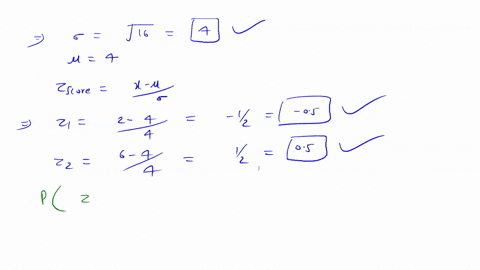 ⇒ σ = √16 = 4 ✓
μ = 4
Zscore = x-μ/σ
⇒ z1 = 2-4/4 = -1/2 = -0.5 ✓
z2 = 6-4/4 = 1/2 = 0.5 ✓
P( z